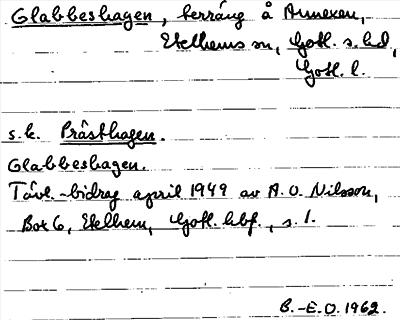 Glabbeshagen, terräng å Annexen,
Etelhems sn, Gotl. s. hd,
Gotl. l.
s.k. Prästhagen.
Glabbeshagen.
Tävl.-bidrag april 1949 av A.O. Nilsson,
Box 6, Etelhem, Gotl. hbf., s. 1.
B.-E.O. 1962.